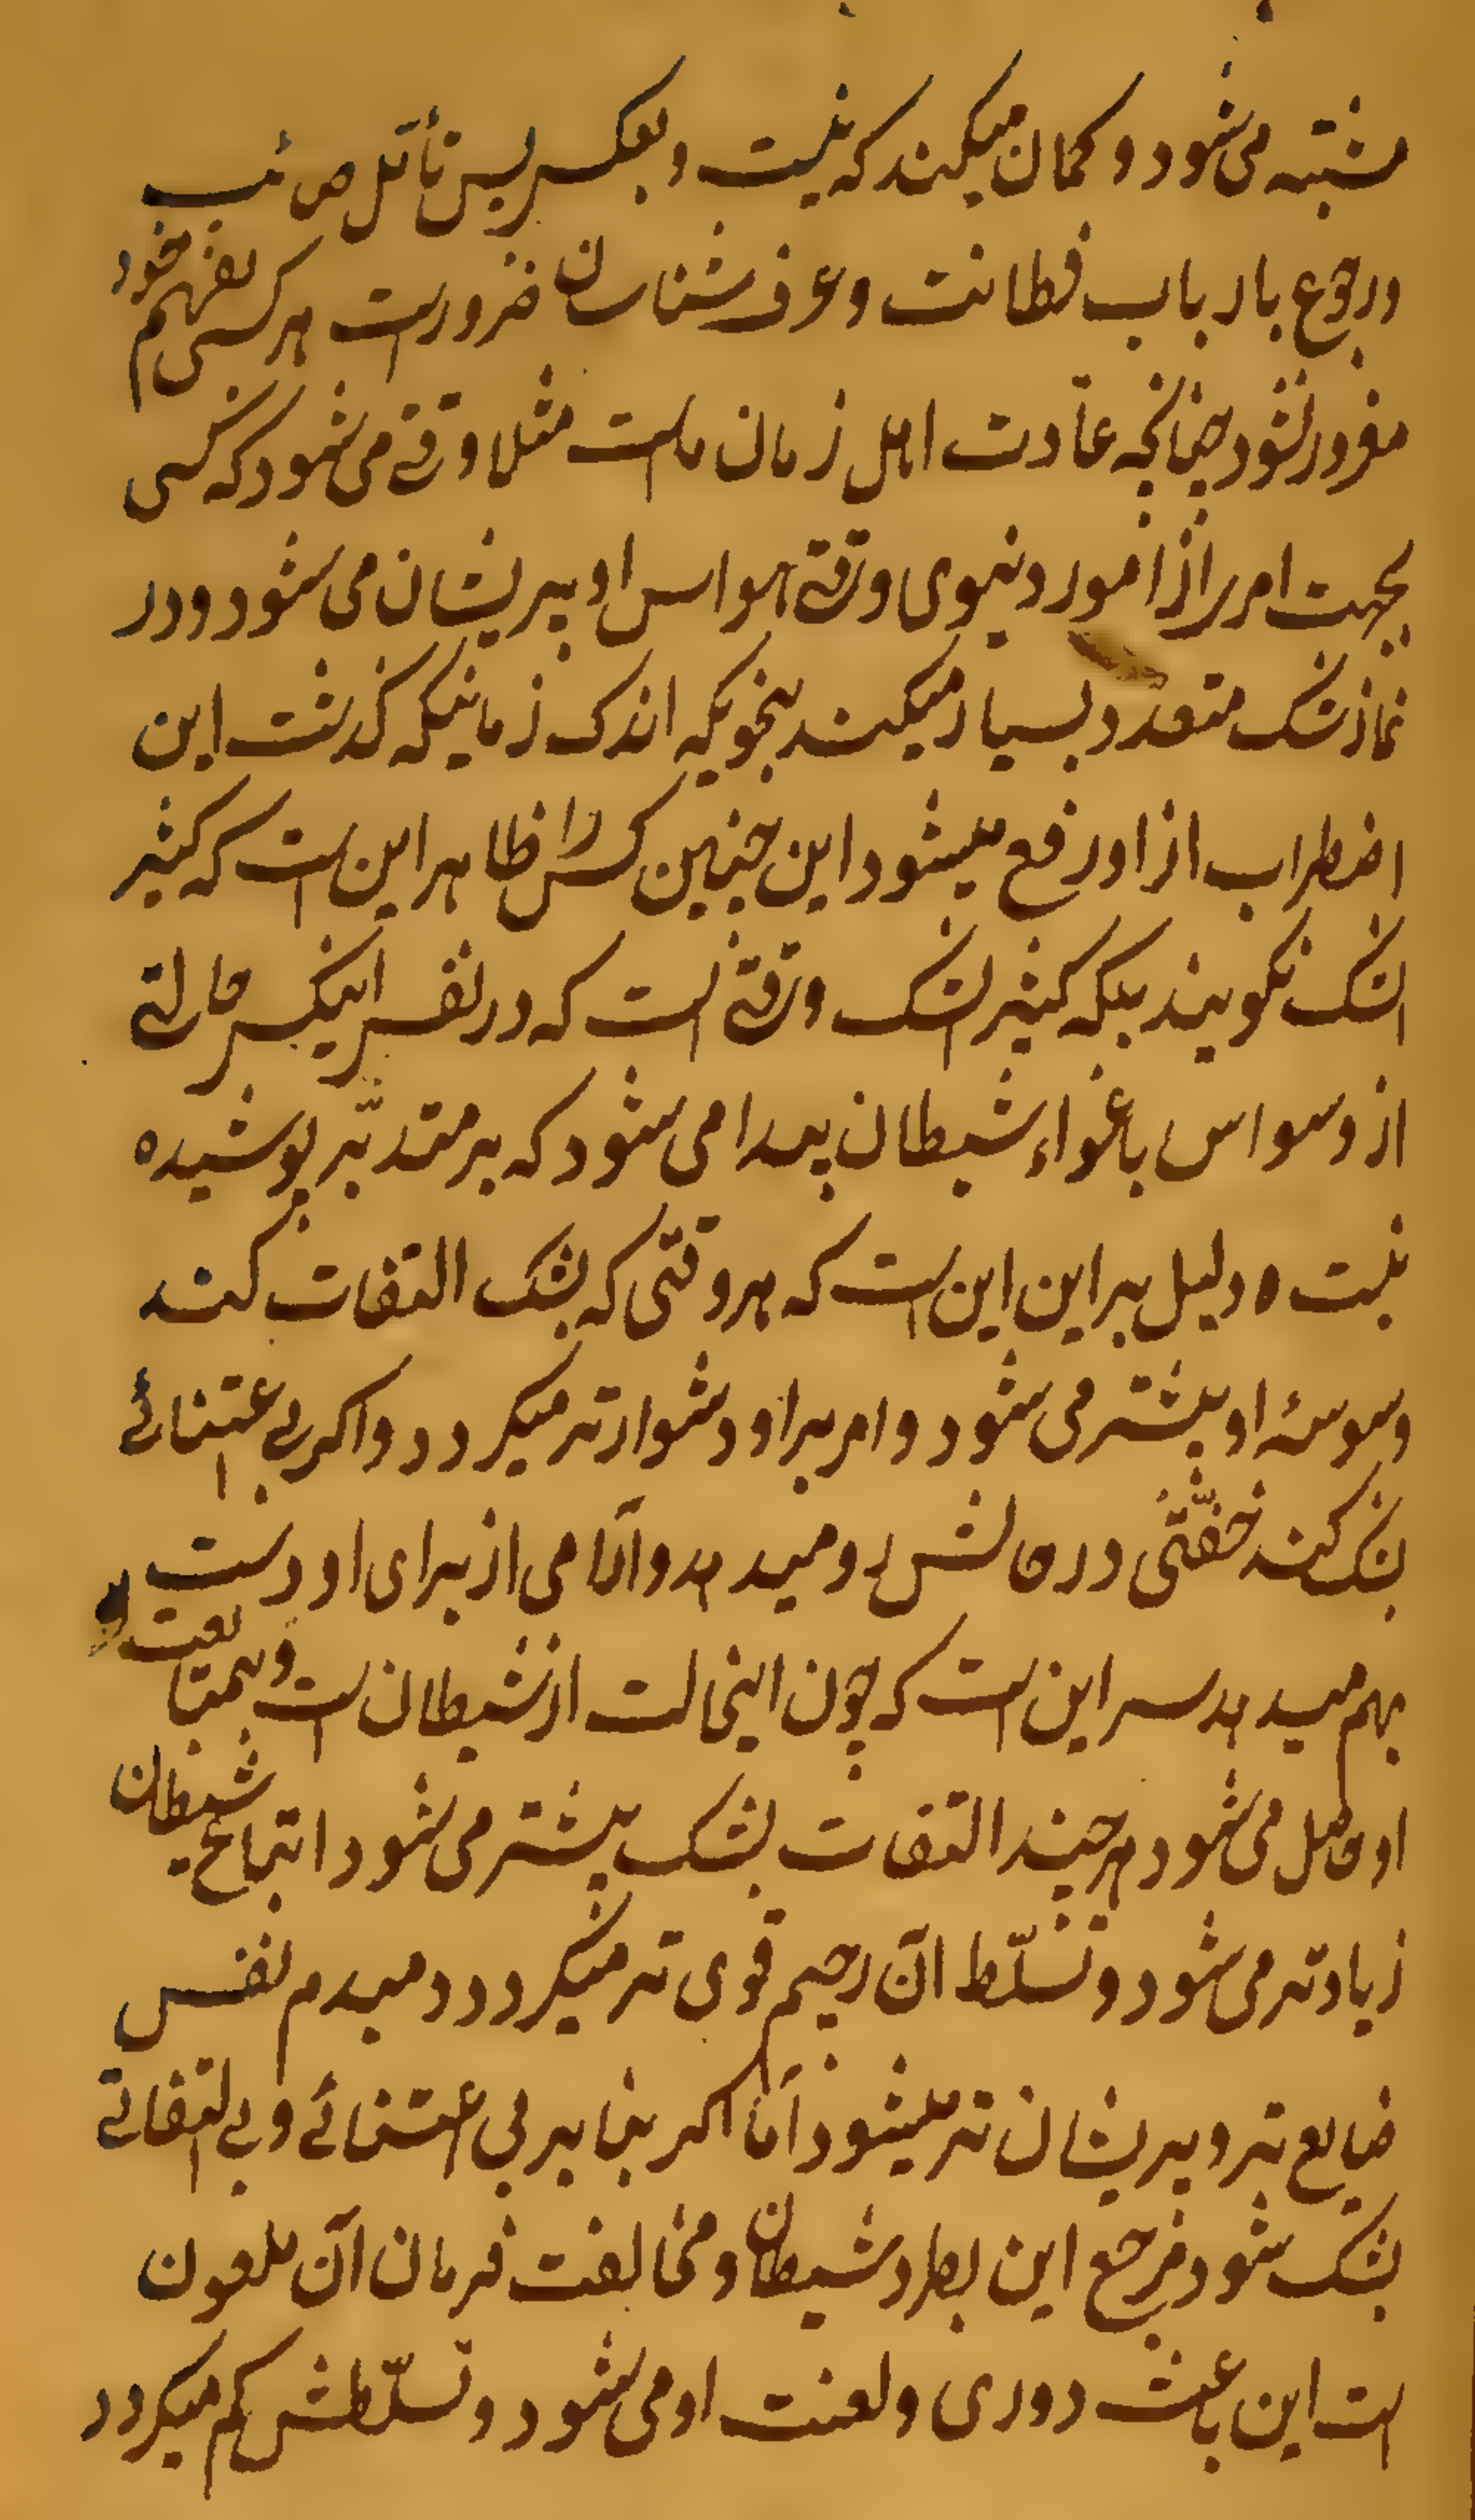 مشتبه می‌شود و کمان میکند که نیست و بعکس پس تأمّل صائب
و رجوع بارباب فطانت و عرف شناسان ضرورست هر کسی بفهم خود
مغرور نشود چنانچه عادت اهل زمان ماست مثلا وقتی می‌شود که کسی
بجهت امری از امور دنیوی وقتی حواس او پریشان می‌شود و در
نماز شک متعدد بسیار میکند بنحویکه اندک زمانیکه گذشت این
اضطراب از او رفع میشود این چنین کس را ظاهر این است که کثیر
الشک نکویند بلکه کثیر الشک وقتی است که در نفس اینکس حالتی
از وسواس باغواء شیطان پیدا می‌شود که بر متدبّر پوشیده
نیست و دلیل بر این این است که هر وقتی که بشک التفات کند
وسوسهٔ او بیشتر می‌شود و امر بر او دشوارتر میکردد و اکر بی‌اعتنائے
بشک کند خفّتی در حالش رو میدهد و آرامی از برای او دست
بهم میدهد سر این است که چون اینحالت از شیطان است و بمتابعت
او حاصل می‌شود هر چند التفات بشک بیشتر می‌شود اتباع شیطان
زیادتر می‌شود و تسلّط آن رجیم قوی تر میکردد و دمبدم نفس
ضایع تر و پریشان تر میشود امّا اکر بنا بر بی اعتنائے و بے التفاتے
بشک شود مرجع این بطرد شیطان و مخالفت فرمان آن ملعون
است این باعث دوری و لعنت او می‌شود و تسلّطش کم میکردد